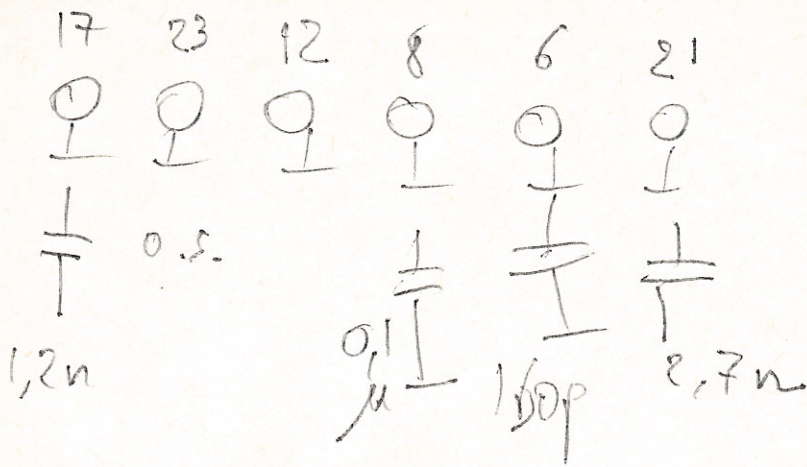 17 23 12 8 6 21
o.s.
1,2n 0,1 μ 2,7n